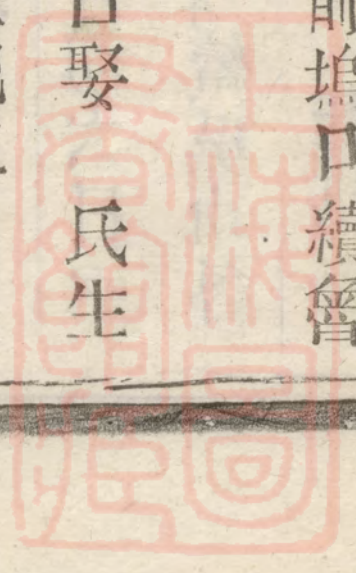 塢口續曾
娶 氏生
上海圖書館藏